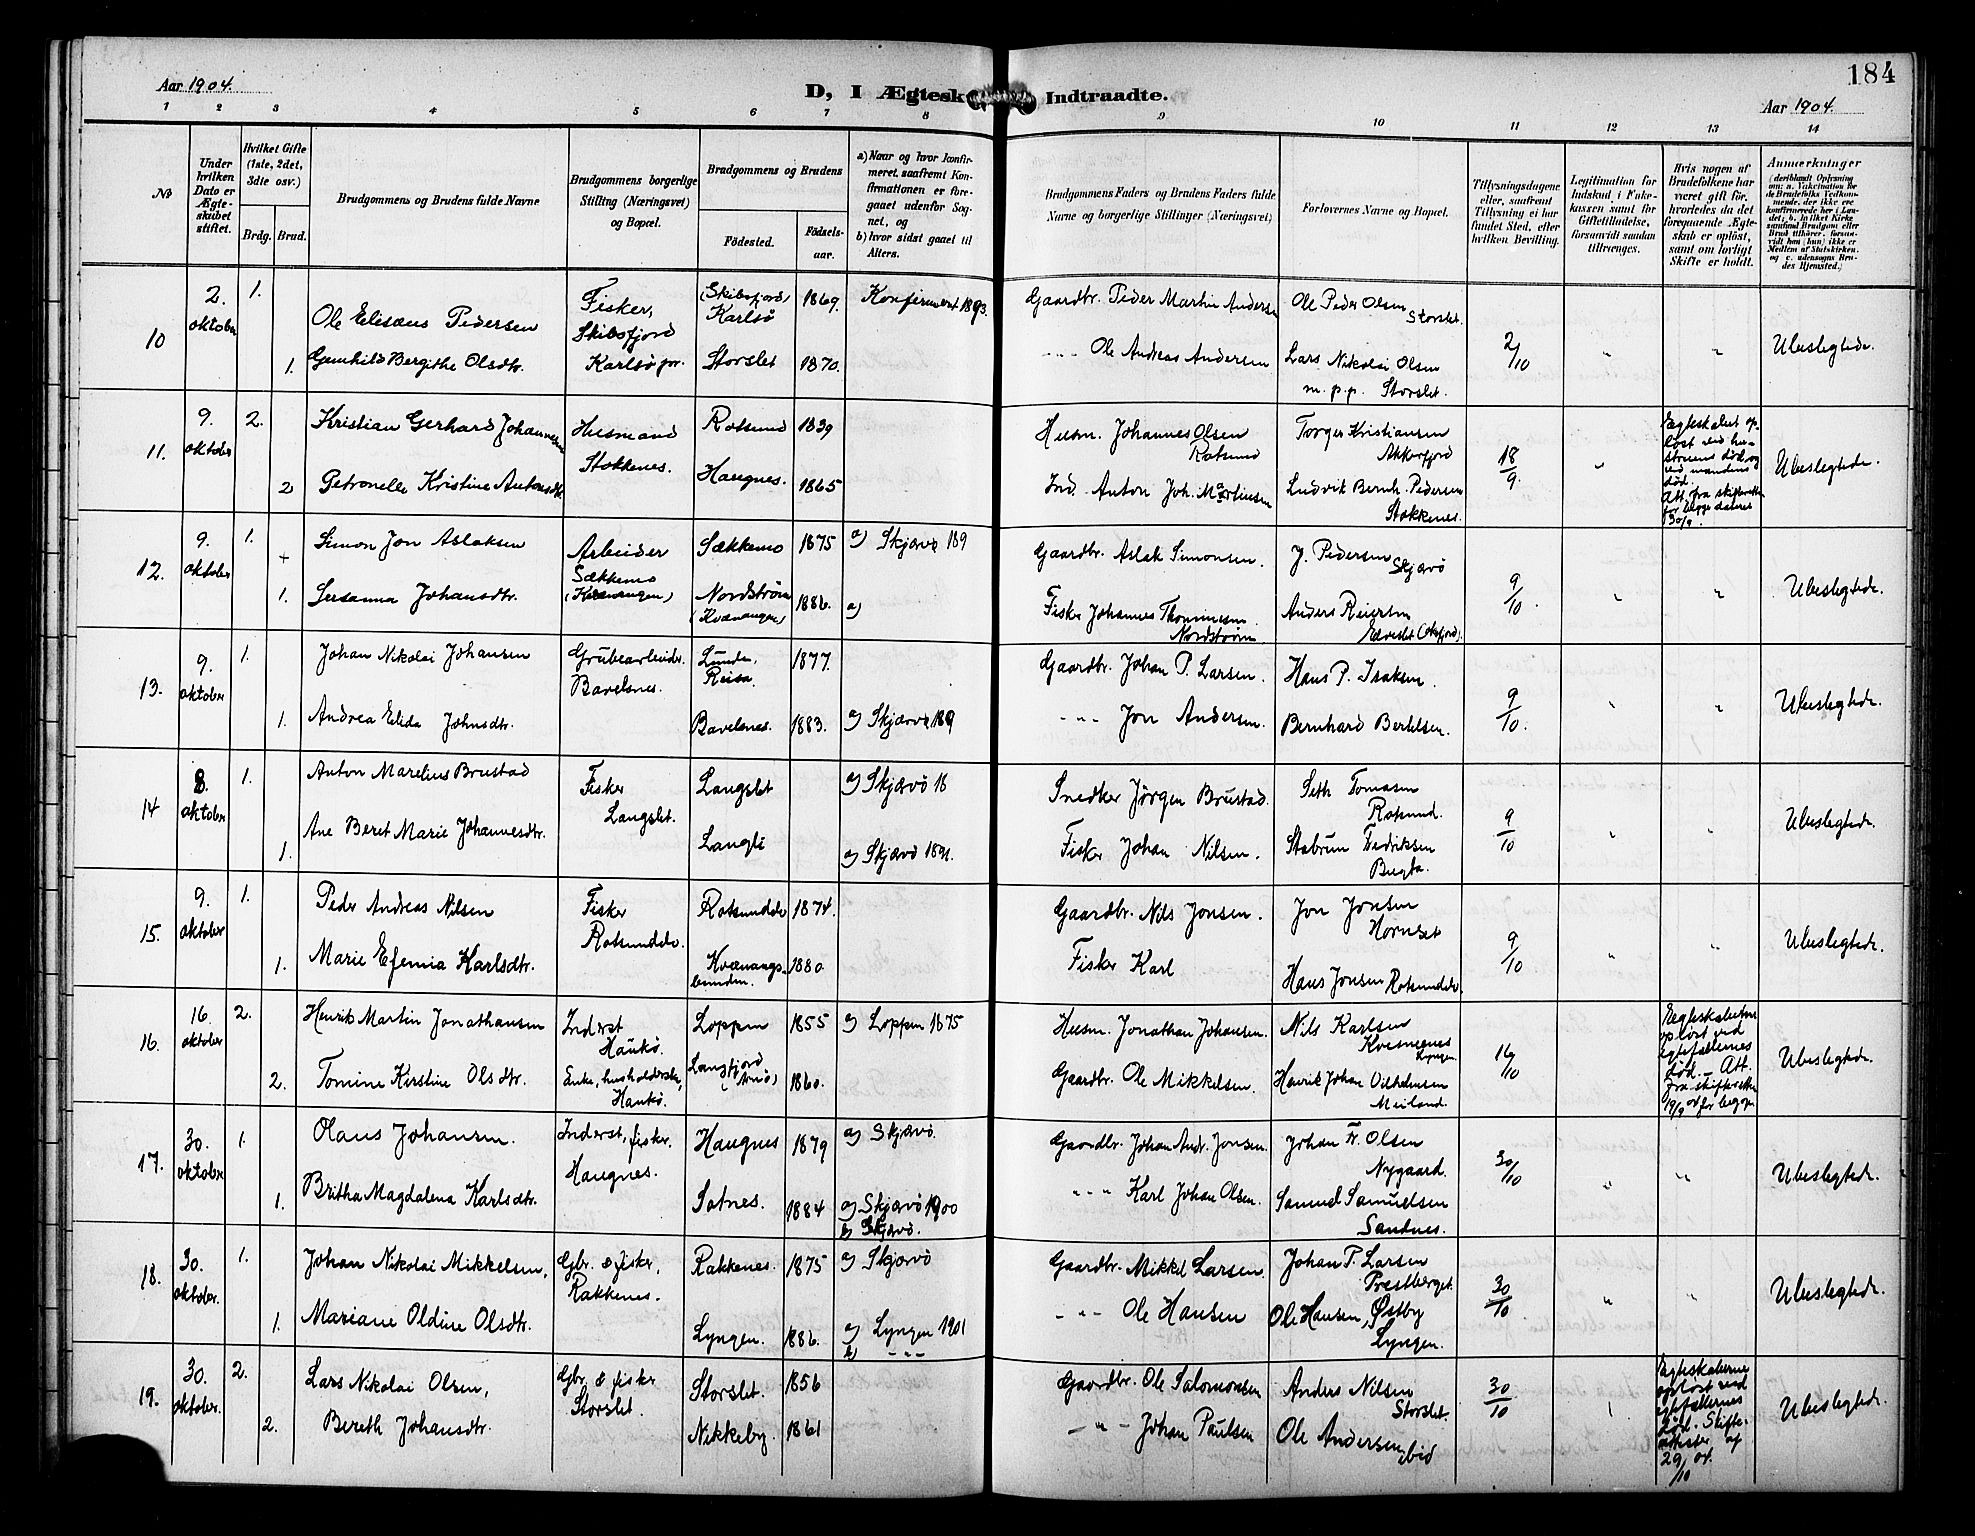 Aar 1904.
D, I Ægtesk Indtraadte.
184
Aar 1904.
1 2 3 4 5 6 7 8 9 10 11 12 13 14
No
Under hvilken Dato er Ægteskabet stiftet.
Hvilket Gifte (1ste, 2det, 3die osv.)
Brdg. Brud.
Brudgommens og Brudens fulde Navne
Brudgommens borgerlige Stilling (Næringsvei) og Bopæl.
Brudgommens og Brudens
Fødested.
Fødselsaar.
a) Naar og hvor konfirmeret, saafremt Konfirmationen er foregaaet udenfor Sognet, og
b) hvor sidst gaaet til Alters.
Brudgommens Faders og Brudens Faders fulde Navne og borgerlige Stillinger (Næringsvei)
Forlovernes Navne og Bopæl.
Tillysningsdagene eller, saafremt Tillysning ei har fundet Sted, efter hvilken Bevilling.
Legitimation for Indskud i Fakkassen samt for Giftetilladelse, forsaavidt saadan tiltrænges.
Hvis nogen af Brudefolkene har været gift før, hvorledes da det foregaaende Ægteskab er opløst, samt om lovligt Skifte er holdt.
Anmærkninger
10
2. oktober
1.
Ole Elisæus Pedersen
Fisker, Skibsfjord Karlsø pr.
(Skibsfjord) Karlsø
1869.
Konfirmeret 1893.
Gaardbr. Peder Martin Andersen
Ole Peder Olsen Storslet.
2/10
"
"
Ubeslegtede.
1.
Gunhild Bergithe Olsdtr.
Storslet
1870.
"- Ole Andreas Andersen
Lars Nikolai Olsen
m. p. p. Storslet.
11.
9. oktober
2.
Kristian Gerhard Johannesen
Husmand Stokkenes.
Rotsund
1839
Husm. Johannes Olsen Rotsund
Torger Kristiansen Akkarfjord
18/9.
"
Ægteskabet opløst ved hustruens død og ved mandens død. Att. fra skifteretten for begge dateret 30/9.
Ubeslegtede.
2
Petronelle Kristine Antonsdtr
Haugnes.
1865
Ind. Anton Joh. Martinsen
Ludvik Bernh. Pedersen Stokkenes.
12.
9. oktober
1.
Simon Jon Aslaksen
Arbeider Sækkemo (Kvænangen)
Sækkemo
1875
a) Skjærvø 189
Gaardbr. Aslak Simonsen.
J. Pedersen Skjærvø
9/10
"
"
Ubeslegtede.
1.
Susanna Johansdtr.
Nordstrøm (Kvænangen)
1886.
a)
Fisker Johannes Thommesen. Nordstrøm
Anders Reiersen
13.
9. oktober
1.
Johan Nikolai Johansen
Grubearbeider. Bavelsnes.
Lunde, Reisa.
1877.
Gaardbr. Johan P. Larsen.
Hans P. Isaksen.
9/10.
"
"
Ubeslegtede.
1.
Andrea Elida Johnsdtr.
Bavelsnes.
1883.
a) Skjærvø 189
"- Jon Andersen.
Bernhard Bertelsen.
14
8. oktober
1.
Anton Marelius Brustad
Fisker Langslet.
Langslet
a) Skjærvø 18
Snedker Jørgen Brustad.
Seth Tomasen Rotsund.
9/10
"
"
Ubeslegtede.
1.
Ane Beret Marie Johannesdtr.
Langli
a) Skjærvø 1891.
Fisker Johan Nilsen.
Fredriksen Bugta.
15.
9. oktober
1.
Peder Andreas Nilsen
Fisker Rotsundelv.
Rotsundelv
1874.
Gaardbr. Nils Jonsen.
Jon Jonsen
9/10
"
"
Ubeslegtede.
1.
Marie Efemia Karlsdtr.
Kvænangsbunden.
1880.
Fisker Karl
Hans Jonsen Rotsundelv.
16.
16. oktober
2.
Henrik Martin Jonathansen
Inderst Haukø.
Loppen
1855
a) Loppen 1875
Husm. Jonathan Johansen.
Nils Karlsen Lyngen.
16/10
Ægteskaberne opløst ved egtefællernes død. - Att. fra skifteretten 19/9 04 for begge.
Ubeslegtede.
2.
Tomine Kirstine Olsdtr.
Enke, husholderske, Haukø.
Langfjord (Arnø)
1860.
Gaardbr. Ole Mikkelsen.
Henrik Johan Vilhelmsen Meiland.
17.
30. oktober
1.
Olaus Johansen.
Inderst, fisker. Haugnes.
Haugnes
1879
a) Skjærvø.
Gaardbr. Johan Andr. Jonsen.
Johan Fr. Olsen Nygaard.
30/10
"
"
Ubeslegtede.
1.
Britha Magdalena Karlsdtr.
Sotnes.
1884
a) Skjærvø 1900
b) Skjærvø.
"- Karl Johan Olsen.
Samuel Samuelsen Sandnes.
18.
30. oktober.
1.
Johan Nikolai Mikkelsen,
Gbr. & fisker, Rakkenes.
Rakkenes.
1875
a) Skjærvø
Gaardbr. Mikkel Larsen.
Johan P. Larsen Prestberget.
30/10
"
"
Ubeslegtede.
1.
Mariane Oldine Olsdtr.
Lyngen.
1886.
a) Lyngen 1901
b) -"-
-"- Ole Hansen
Ole Hansen, Østby Lyngen.
19.
30. oktober.
2.
Lars Nikolai Olsen,
Gbr. & fisker Storslet.
Storslet.
1856
Gaardbr. Ole Salomonsen
Anders Nilsen Storslet.
30/10
Ægteskaberne opløst ved egtefællernes død. Skifteattester af 29/10 04.
Ubeslegtede.
2.
Bereth Johansdtr.
Nikkeby.
1861
-"- Johan Paulsen
Ole Andersen ibid